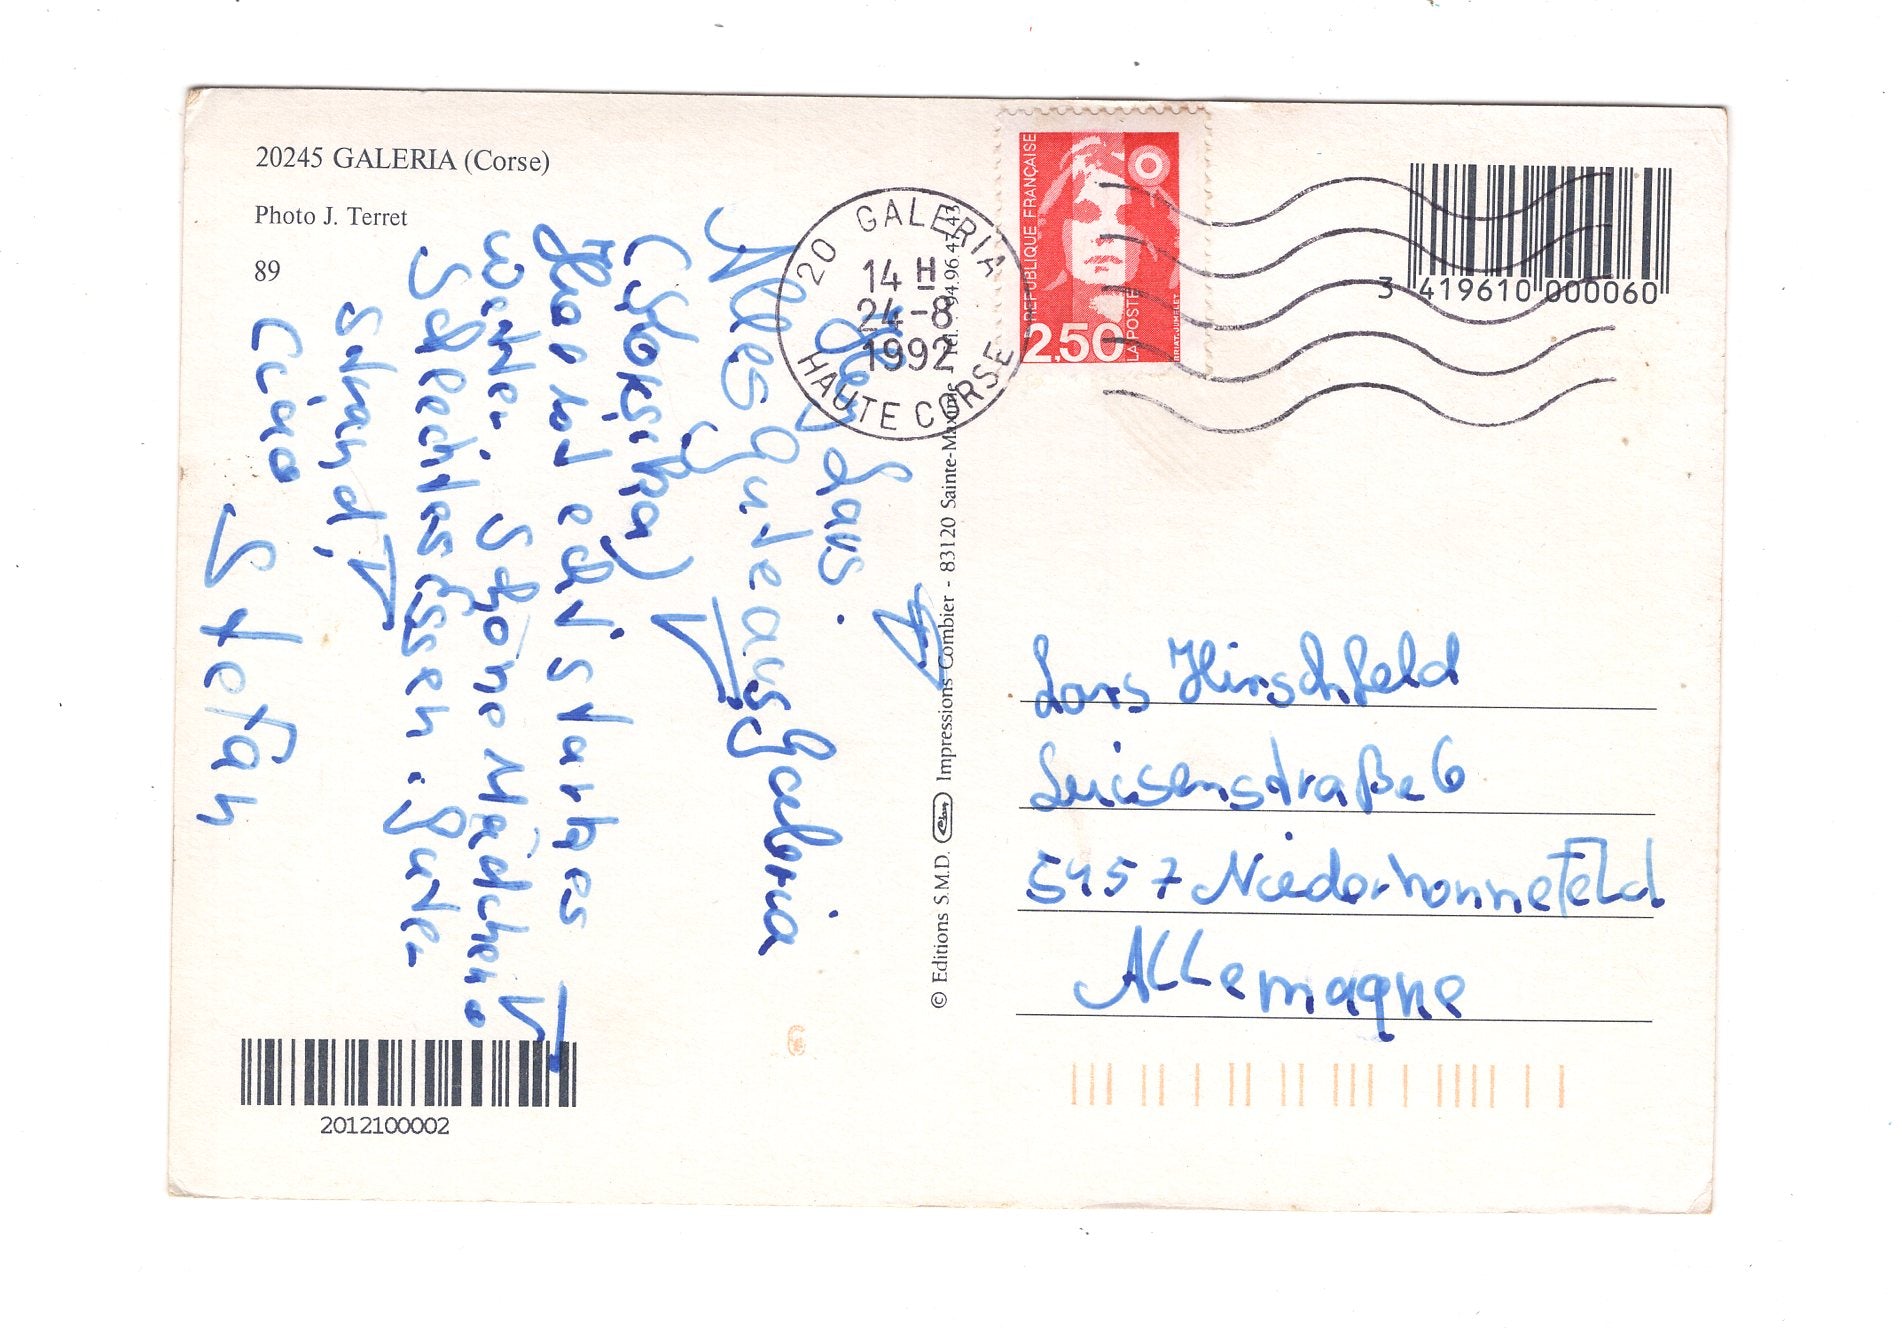 20245 GALERIA (Corse)
Photo J. Terret
89
Hey Lars.
Alles gute aus Galeria
(Korsika)
Hier ist echt starkes
Wetter. Schöne Mädchen.
Schlechtes Essen. guter
Strand,
Ciao
Stefan
2012100002
© Editions S.M.D. Impressions Combier - 83120 Sainte-Maxime Tél. 94.96.47.43
20 GALERIA
14 H
24-8
1992
HAUTE CORSE
REPUBLIQUE FRANÇAISE
2,50
LA POSTE
BRIAT.JUMELET
3 419610 000060
Lars Hirschfeld
Luisenstraße 6
5457 Niederhonnefeld
Allemagne